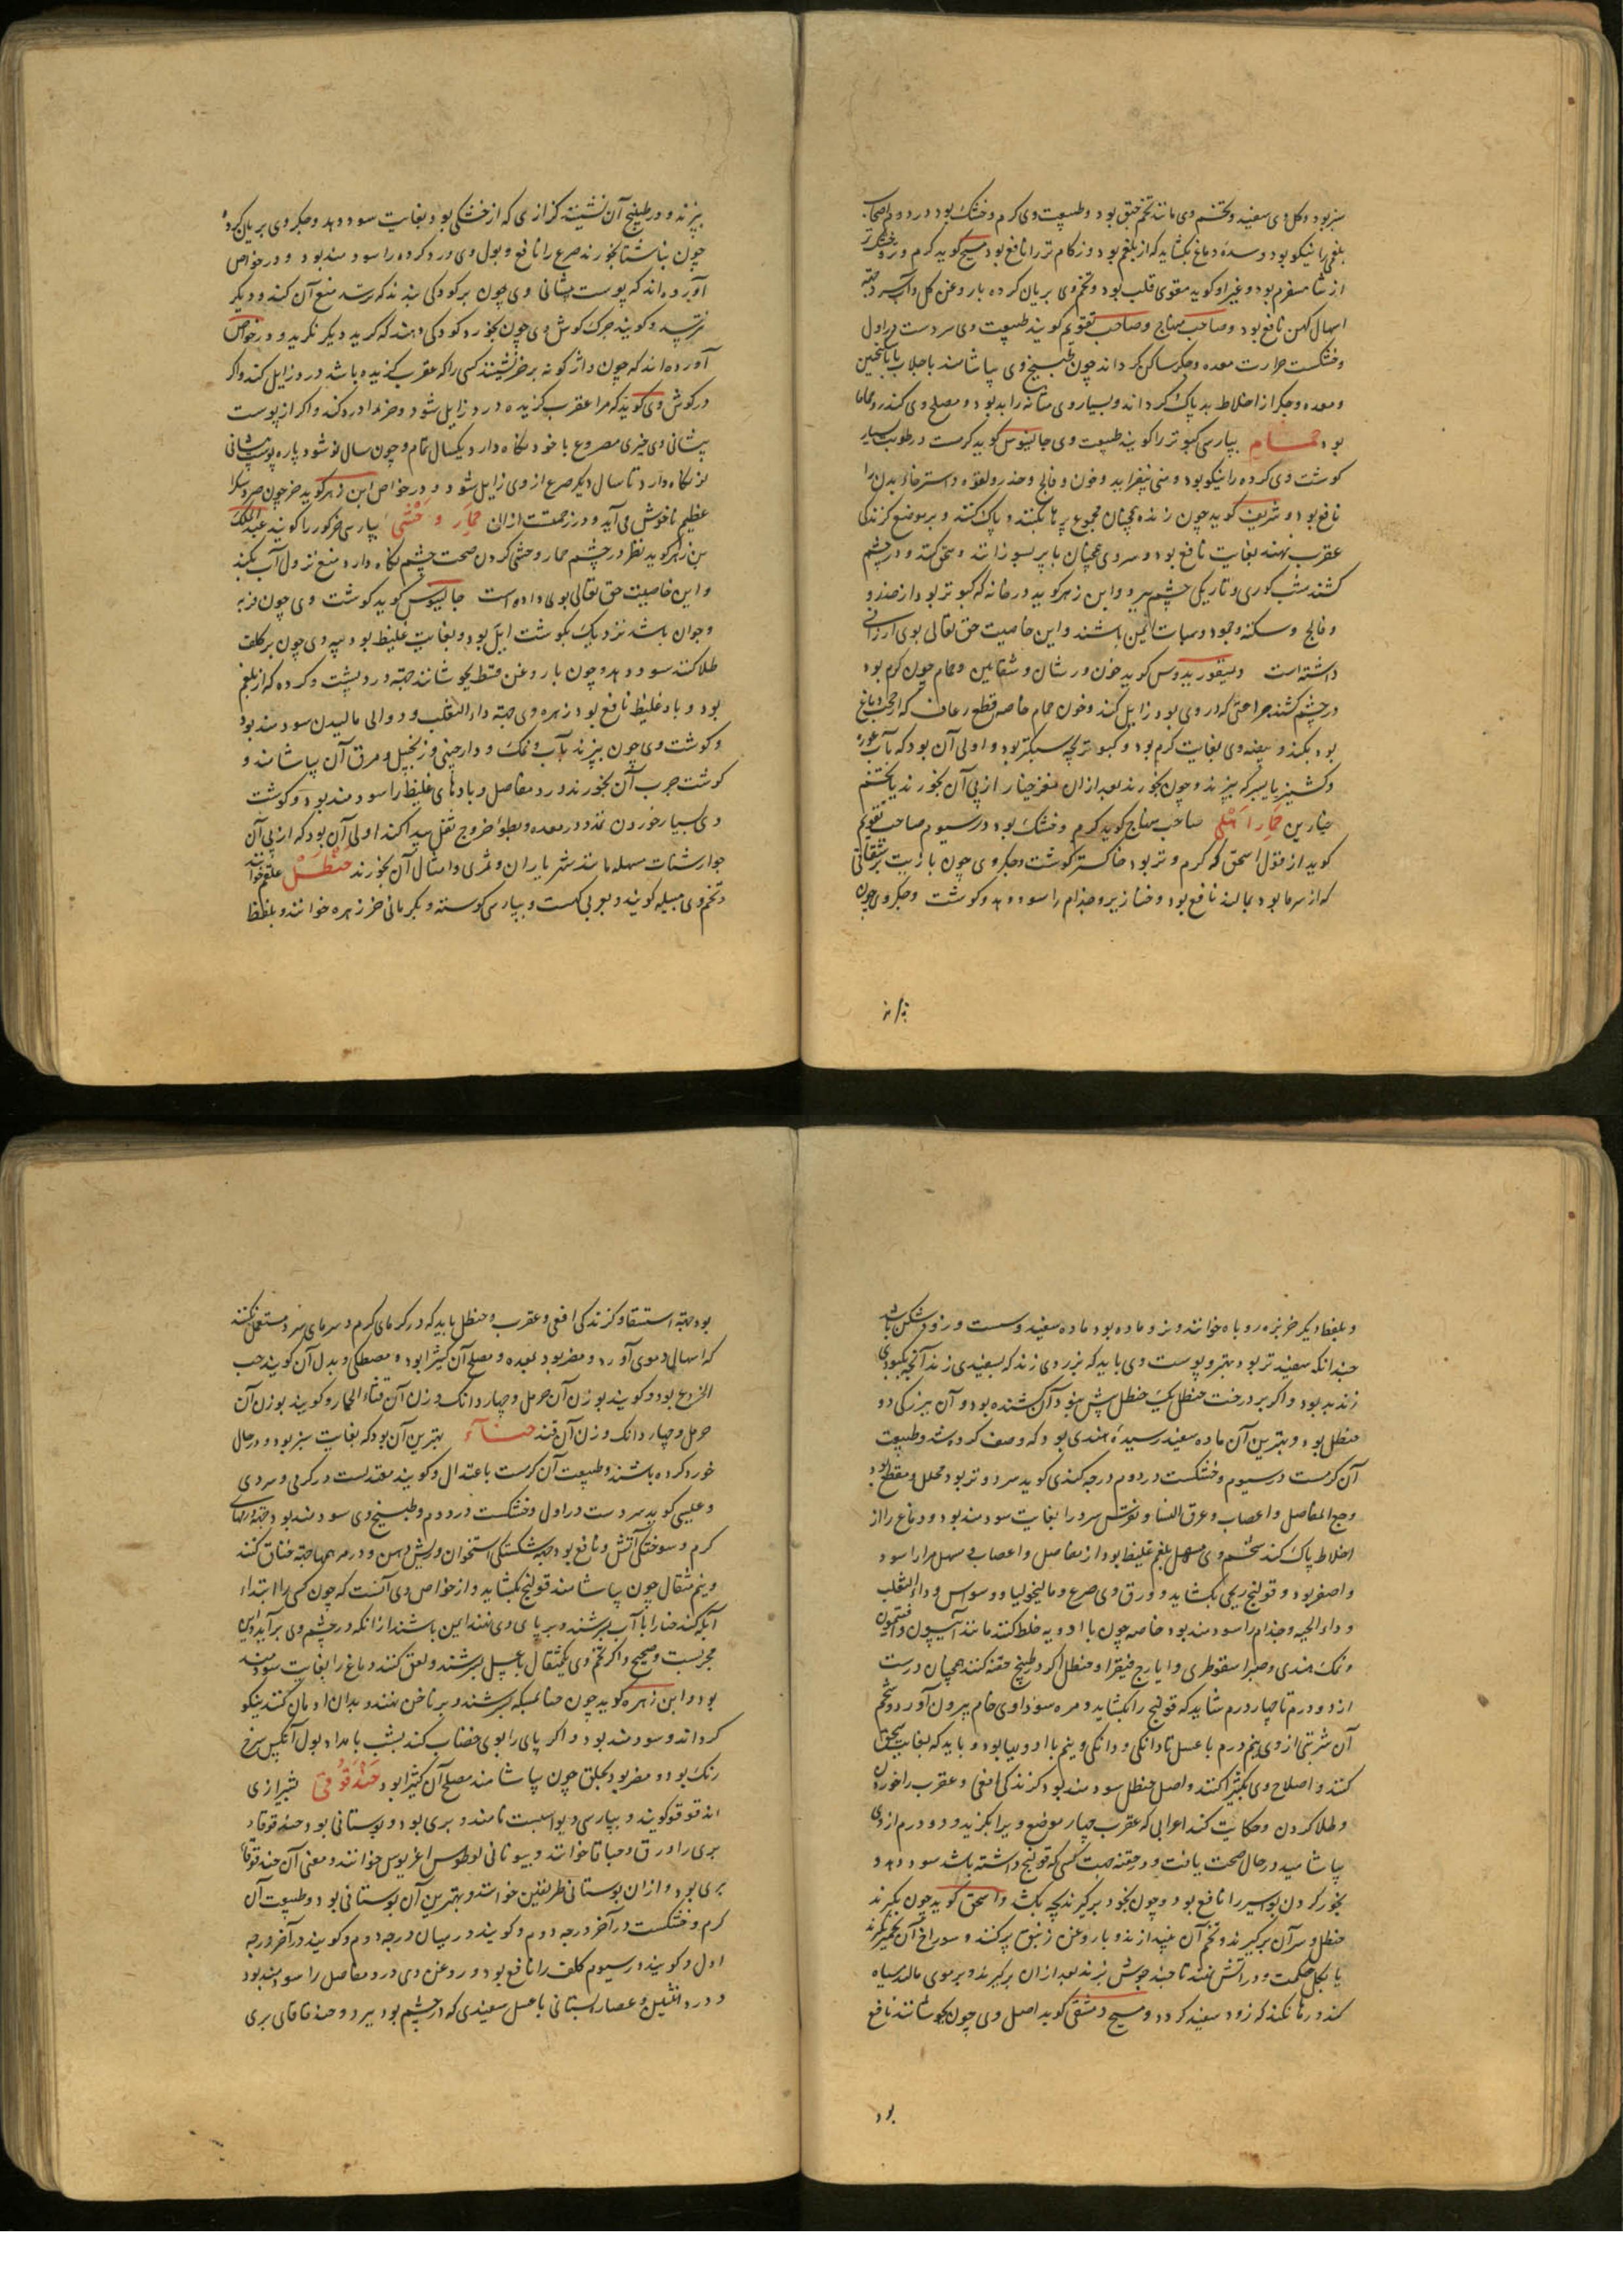 سبز بود و گل وی سفید و تخم وی مانند تخم حبق بود و طبیعت وی گرم و خشک بود در دوم اصحاب
بلغمی را نیکو بود و سده دماغ بکشاید که از بلغم بود و زکام تر را نافع بود مسیح گوید گرم و خشک‌تر
از شاهسفرم بود و غیر او گوید مقوی قلب بود و تخم وی بریان کرده با روغن گل و آب سرد جهة
اسهال کهن نافع بود و صاحب منهاج و صاحب تقویم گویند طبیعت وی سردست در اول
و خشکست حرارت معده و جگر ساکن گرداند چون طبیخ وی بیاشامند با جلاب یا سکنجبین
و معده و جگر از اخلاط بد پاک گرداند و بسیار وی مثانه را بد بود و مصلح وی کندر و حماما
بود حمام بپارسی کبوتر را گویند طبیعت وی جالینوس گوید گرمست و رطوبت بسیار
گوشت وی گرده را نیکو بود و منی بیفزاید و خون و فالج و خدر و لقوه و استرخاء بدن را
نافع بود و شریف گوید چون زنده همچنان مجموع پرها بکنند و پاک کنند و بر موضع گزندگی
عقرب نهند بغایت نافع بود و سر وی همچنان با پر بسوزانند و سحق کنند و در چشم
کشند شب کوری و تاریکی چشم ببرد و ابن زهر گوید در خانه که کبوتر بود از خدر و
و فالج و سکته و جمود و سبات ایمن باشند و این خاصیت حق تعالی بوی ارزانی
داشته است و دیسقوریدوس گوید خون ورشان و شفانین و حمام چون گرم بود
در چشم کشند جراحتی که در وی بود زایل کند و خون حمام خاصه قطع رعاف که از حجب دماغ
بود بکند و بیضه وی بغایت گرم بود و کبوتر بچه سبکتر بود و اولی آن بود که بآب غوره
و کشنیز یا بسرکه بپزند و چون بخورند بعد از ان مغز خیار از پی آن بخورند یا تخم
خیارین حمار اهلی صاحب منهاج گوید گرم و خشک بود در سیوم صاحب تقویم
گوید از قول اسحق که گرم و تر بود خاکستر گوشت و جگر وی چون با زیت بر شقاقی
که از سرما بود بمالند نافع بود و خنازیر و جذام را سود دهد و گوشت و جگر وی چون
بپزند
بپزند و در طبیخ آن نشینند کزازی که از خشکی بود بغایت سود دهد و جگر وی بریان کرده
چون بناشتا بخورند صرع را نافع و بول وی درد گرده را سودمند بود و در خواص
آورده‌اند که پوست پیشانی وی چون بر کودکی بندند که ترسد منع آن کند و دیگر
نترسد و گویند چرک گوش وی چون بخورد کودکی دهند که گرید دیگر نگرید و در خواص
آورده‌اند که چون واژگونه بر خر نشینند کسی را که عقرب گزیده باشد درد زایل کند و اگر
در گوش وی گوید که مرا عقرب گزیده درد زایل شود و خر را درد کند و اگر از پوست
پیشانی وی خیزی مصروع با خود نگاه دارد یکسال تمام و چون سال نو شود پاره پوست پیشانی
نو نگاه دارد تا سال دیگر صرع از وی زایل شود و در خواص ابن زهر گوید خر چون صرد سگ را
عظیم ناخوش می‌آید و در زحمتست از ان حمار وحشی بپارسی خر گور را گویند عبد الملک
بن زهر گوید نظر در چشم حمار وحشی کردن صحت چشم نگاه دارد و منع نزول آب بکند
و این خاصیت حق تعالی بوی داده است جالینوس گوید گوشت وی چون فربه
و جوان باشد نزدیک بگوشت ایل بود و بغایت غلیظ بود پیه وی چون بر کلف
طلا کنند سود دهد و چون با روغن قسط بجوشانند جهة درد پشت و گرده که از بلغم
بود و باد غلیظ نافع بود زهره وی جهة داء الثعلب و دوالی مالیدن سودمند بود
و گوشت وی چون بپزند بآب و نمک و دارچینی و زنجبیل و مرق آن بیاشامند و
گوشت چرب آن بخورند درد مفاصل و بادهای غلیظ را سودمند بود و گوشت
وی بسیار خوردن تمدد در معده و بطؤ خروج ثفل پیدا کند اولی آن بود که از پی آن
جوارشنات مسهله مانند شهریاران و تمری و امثال آن بخورند حنظل علقم خوانند
و تخم وی هبید گویند و بعربی کبست و بپارسی کوسته و بکرمانی خر زهره خوانند و بلفظ
و بلفظ دیگر خربزه روباه خوانند و نر و ماده بود ماده سفید و سست و زود شکن باشد
چندانکه سفیدتر بود بهتر و پوست وی باید که بزردی زند که بسفیدی زند آنچه بکبودی
زند بد بود و اگر بر درخت حنظل یک حنظل بیش نبود آن کشنده بود و آن ببزرگی دو
حنظل بود و بهترین آن ماده سفید رسیده هندی بود که وصف کرده شد و طبیعت
آن گرمست در سیوم و خشکست در دوم درجه کندی گوید سرد و تر بود محلل و مقطع بود
وجع المفاصل و اعصاب و عرق النسا و نقرس سرد را بغایت سودمند بود و دماغ را از
اخلاط پاک کند شحم وی مسهل بلغم غلیظ بود از مفاصل و اعصاب و مسهل مرار اسود
و اصفر بود و قولنج ریحی بکشاید و ورق وی صرع و مالیخولیا و وسواس و داء الثعلب
و داء الحیه و جذام را سودمند بود خاصه چون با ادویه خلط کنند مانند آنیسون و افتیمون
و نمک هندی و صبر اسقوطری و ایارج فیقرا و حنظل اگر در طبیخ حقنه کنند همچنان درست
از دو درم تا چهار درم شاید که قولنج را بکشاید و مره سوداوی خام بیرون آورد و شحم
آن شربتی از وی نیم درم با عسل تا دانگی و دانگی و نیم با ادویها بود و باید که بغایت سحق
کنند و اصلاح وی بکثیرا کنند و اصل حنظل سودمند بود گزندگی افعی و عقرب را خوردن
و طلا کردن و حکایت کنند اعرابی که عقرب چهار موضع ویرا بگزید و دو درم از وی
بیاشامید در حال صحت یافت و در حقنه جهت کسی که قولنج داشته باشد سود دهد و
بخور کردن بواسیر را نافع بود و چون بخود برگیرند بچه بکشد و اسحق گوید چون بگیرند
حنظل و سر آن برگیرند و تخم آن بیندازند و با روغن زنبق پر کنند و سوراخ آن بخمیر گیرند
یا بگل حکمت و در آتش نهند تا چند جوش بزند بعد از ان برگیرند و بر موی مالند سیاه
کند و رها نکند که زود سفید گردد و مسیح دمشقی گوید اصل وی چون بجوشانند نافع
بود
بود جهة استسقا و گزندگی افعی و عقرب و حنظل باید که در گرمای گرم و سرمای سرد مستعمل نکنند
که اسهال دموی آورد و مضر بود بمعده و مصلح آن کثیرا بود و مصطکی و بدل آن گویند حب
الخروع بود و گویند بوزن آن حرمل و چهار دانگ وزن آن قثاء الحمار و گویند بوزن آن
حرمل و چهار دانگ وزن آن قند حناء بهترین آن بود که بغایت سبز بود و در حال
خورد کرده باشند و طبیعت آن گرمست باعتدال و گویند معتدلست در گرمی و سردی
و عیسی گوید سردست در اول و خشکست در دوم و طبیخ وی سودمند بود جهة ورمهای
گرم و سوختگی آتش و نافع بود جهة شکستگی استخوان و ریش دهن و در مرهمها جهة خناق کنند
و نیم مثقال چون بیاشامند قولنج بکشاید و از خواص وی آنست که چون کسی را ابتداء
آبله کند حنا را با آب بسرشند و بر پای وی نهند ایمن باشند از آنکه در چشم وی برآید و این
مجربست و صحیح و اگر تخم وی یکمثقال با عسل بسرشند و لعق کنند دماغ را بغایت سودمند
بود و ابن زهره گوید چون حنا بمسکه بسرشند و بر ناخن نهند و بدان ادمان کنند نیکو
گرداند و سودمند بود و اگر پای را بوی خضاب کند بشب بامداد بول آنکس سرخ
رنگ بود و مضر بود بحلق چون بیاشامند مصلح آن کثیرا بود حندقوقی بشیرازی
اندقوقو گویند و بپارسی دیو اسبست نامند و بری بود و بوستانی بود حندقوقاء
بری را ورق و حباقا خوانند و بیونانی لوطوس اغریوس خوانند و معنی آن حندقوقا
بری بود و از ان بوستانی طریفلن خوانند و بهترین آن بوستانی بود و طبیعت آن
گرم و خشکست در آخر درجه دوم و گویند در میان درجه دوم و گویند در آخر درجه
اول و گویند در سیوم کلف را نافع بود و روغن وی درد مفاصل را سودمند بود
و درد انثیین و عصاره بستانی با عسل سفیدی که در چشم بود ببرد و حندقاقای بری